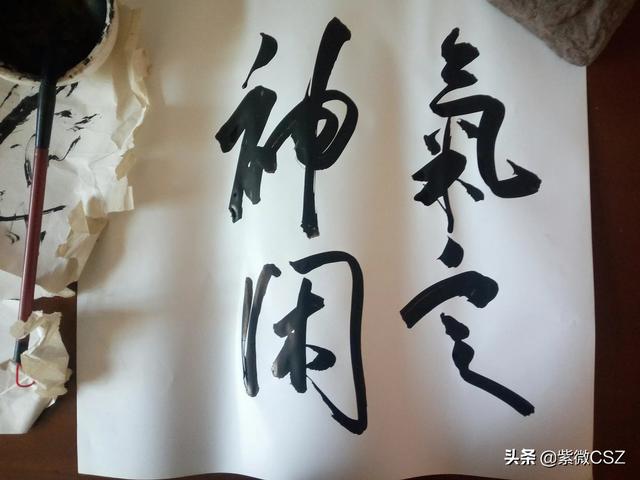 氣定
神閑
头条 @紫微CSZ